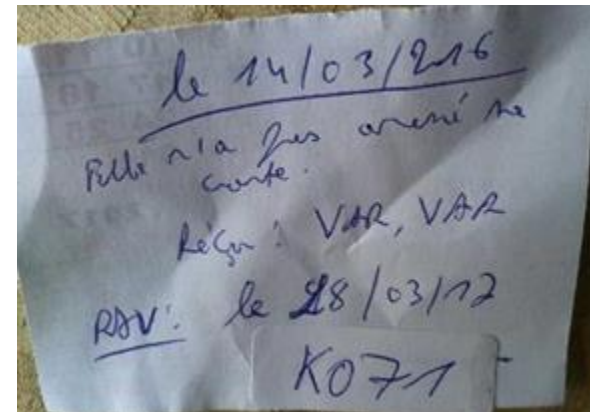 le 14/03/2016
Fille n'a pas amené sa
carte.
Réçu : VAR, VAR
RDV: le 28/03/17
K071